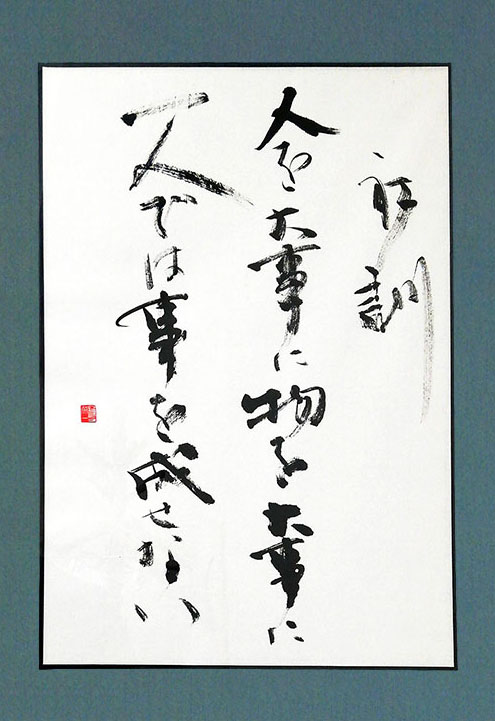 社訓
人を大事に物を大事に
一人では事を成せない